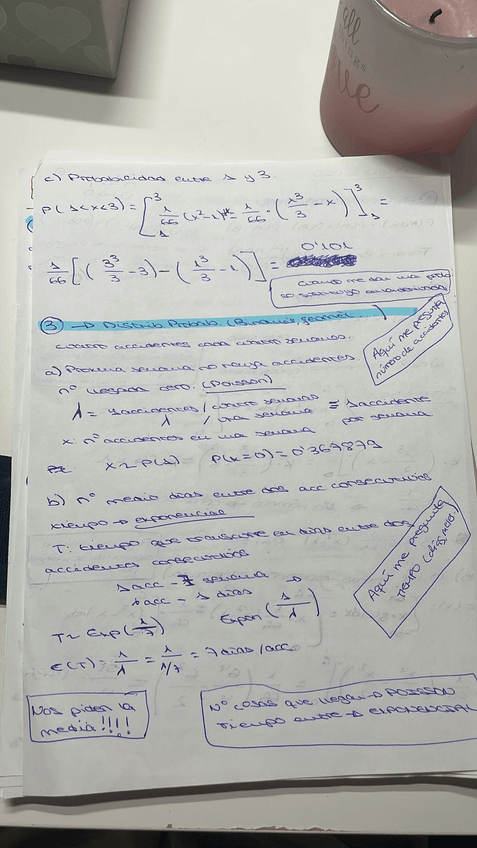 c) Probabilidad entre 1 y 3.
P(1<x<3) = [ ∫₁³ 1/66 (x²-1) = 1/66 · (x³/3 - x) ]₁³ =
1/66 [ (3³/3 - 3) - (1³/3 - 1) ] = 0'101
cuando me dan una
③ → Distrib. Probab. (Binomial, geomet...)
cuatro accidentes cada cuatro semanas.
Aquí me pregunta
número de accidentes
a) Próxima semana no haya accidentes
nº llegada cero. (Poisson)
λ = 4 accidentes / cuatro semanas = 1 accidente
λ / una semana por semana
x: nº accidentes en una semana
x ~ P(1) P(x=0) = 0'367879
b) nº medio días entre dos acc consecutivos
tiempo → exponencial
T: tiempo que transcurre en días entre dos
accidentes consecutivos
Aquí me pregunta
TIEMPO (días, meses)
1 acc - 7 semana
λ acc - 1 días
Expon (1/λ)
T ~ Exp(1/7)
E(T) = 1/λ = 1/1/7 = 7 días/acc
Nos piden la
media!!!!
Nº cosas que llegan → POISSON
Tiempo entre → EXPONENCIAL